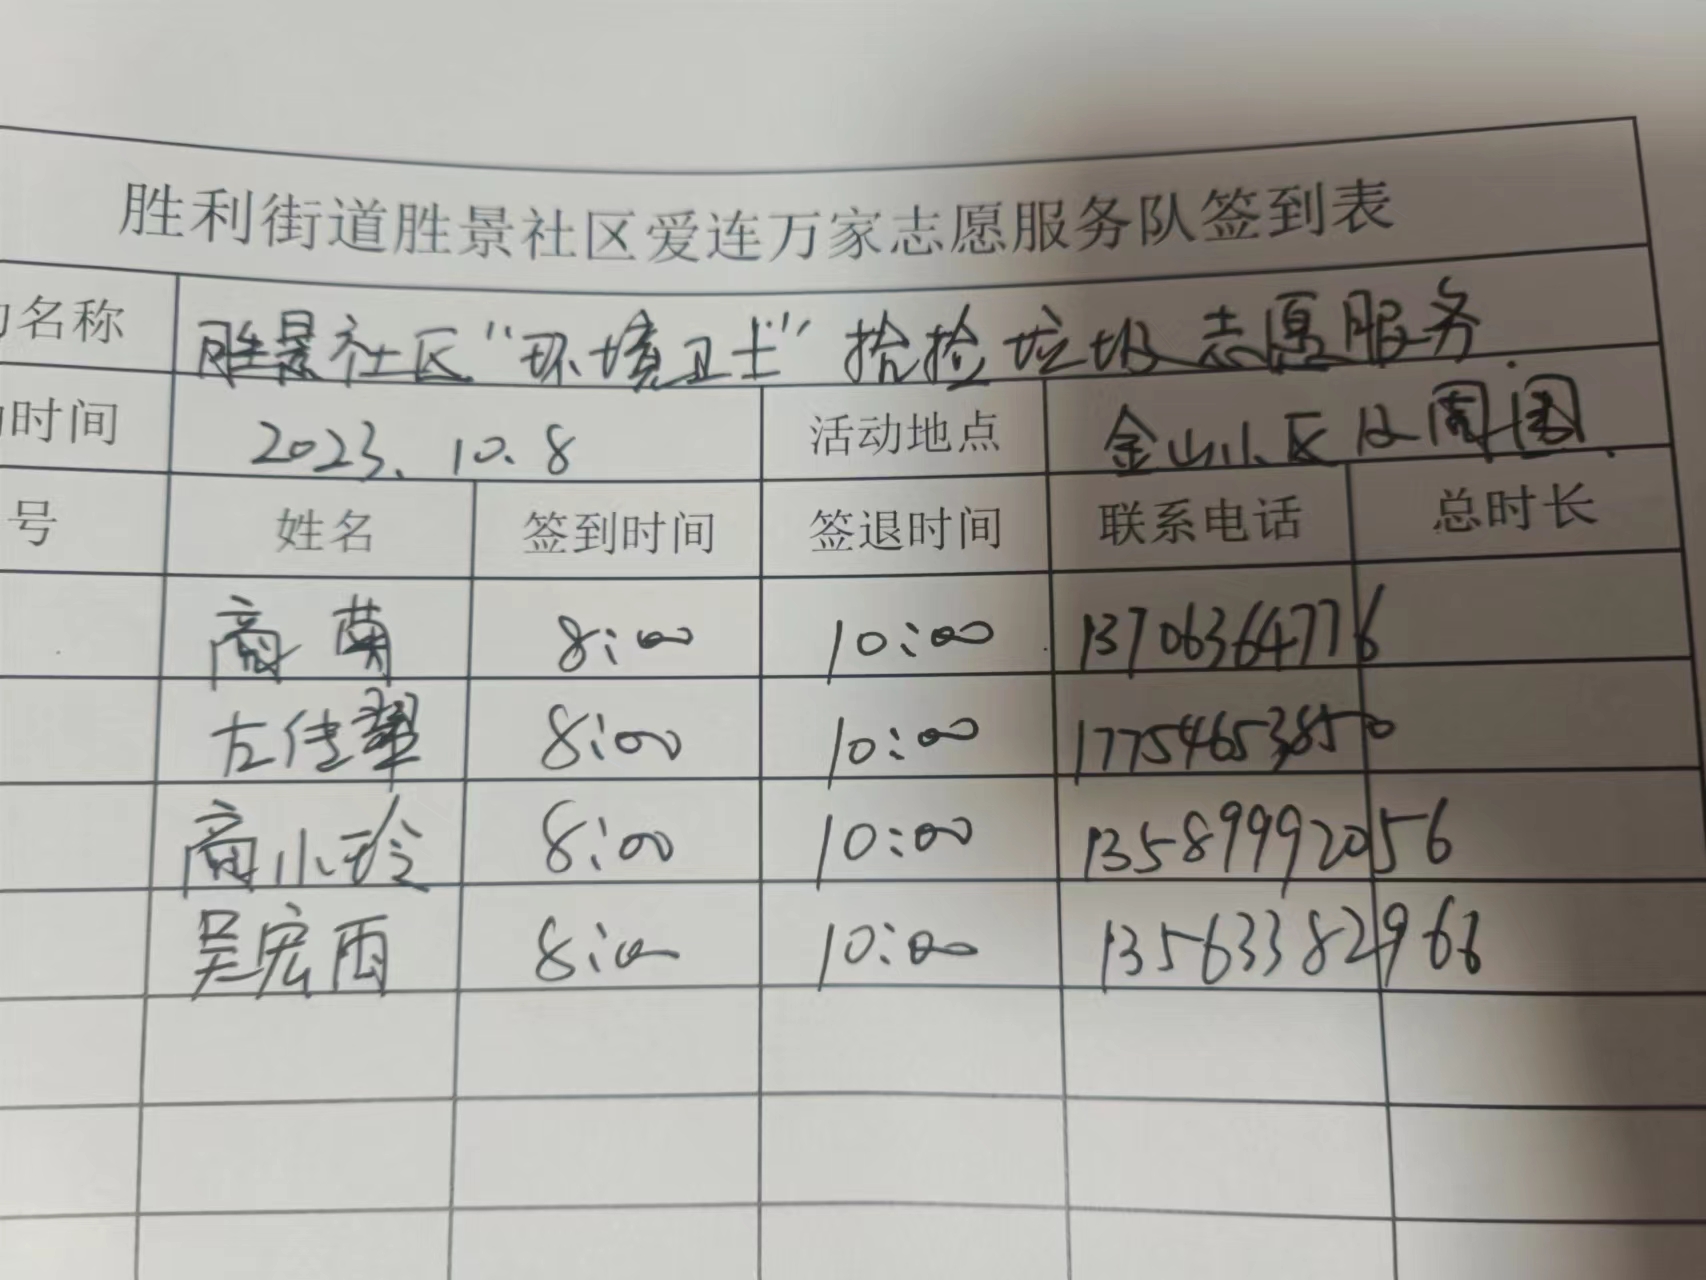 胜利街道胜景社区爱连万家志愿服务队签到表
名称 胜景社区“环境卫士”拾捡垃圾志愿服务.
时间 2023.10.8 活动地点 金山小区及周围.
号 姓名 签到时间 签退时间 联系电话 总时长
商菊 8:00 10:00 13706364776
左佳翠 8:00 10:00 17754653850
商小玲 8:00 10:00 13589992056
吴宏雨 8:00 10:00 13563382968